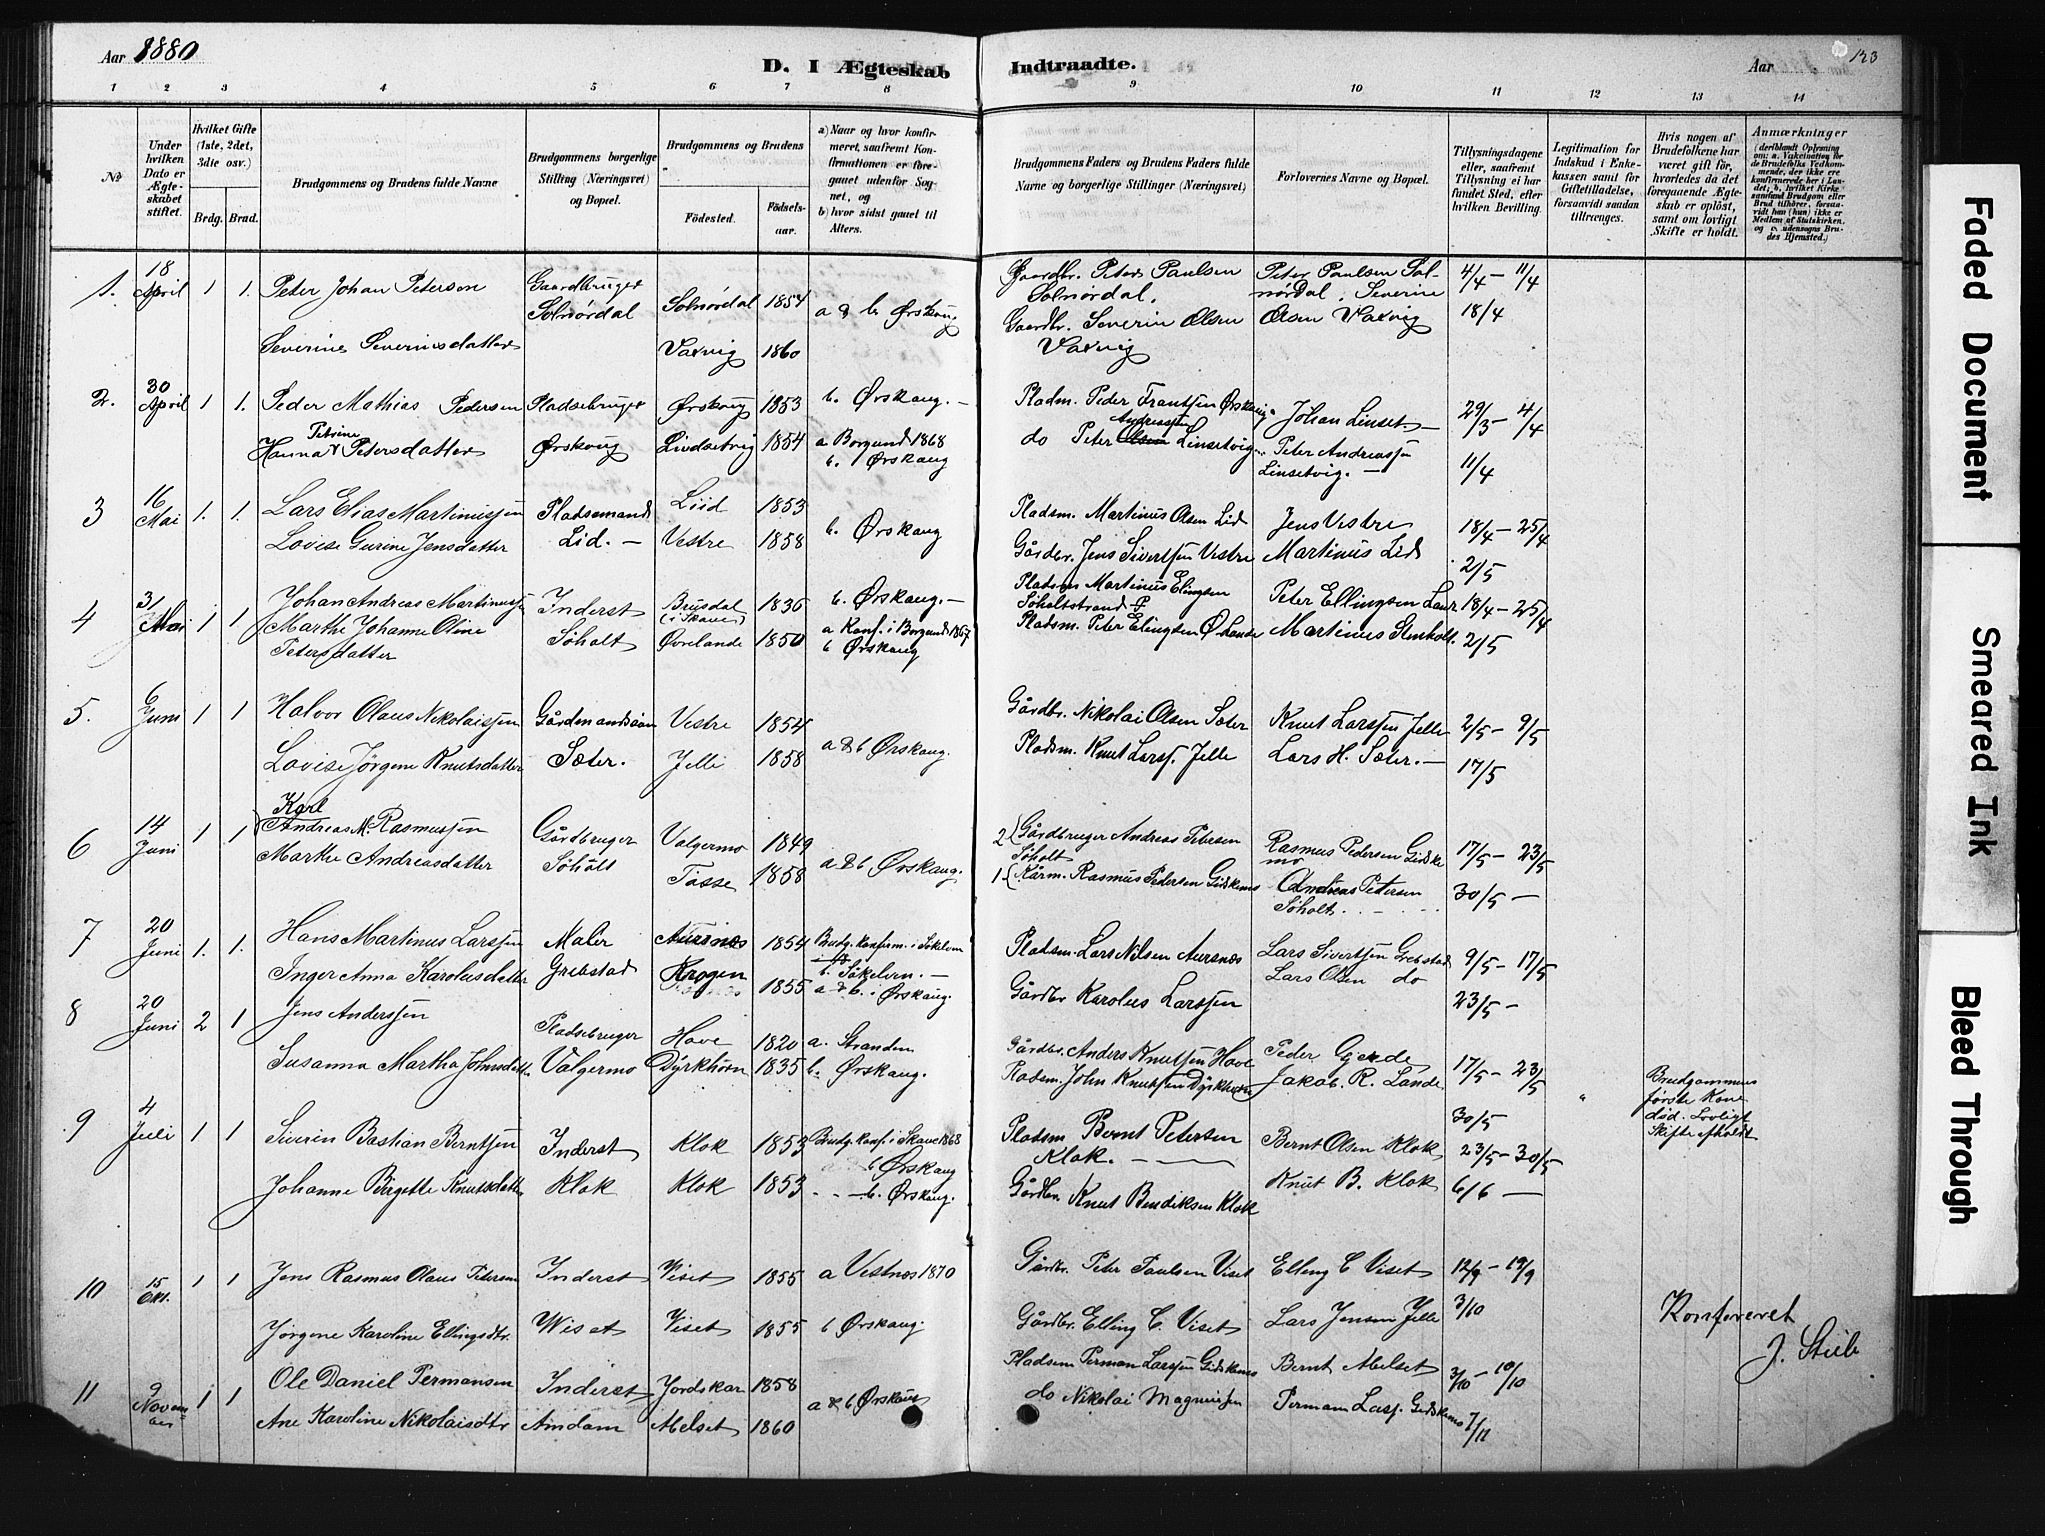 Aar 1880
D. I Ægteskab Indtraadte.
Aar
123
1 2 3 4 5 6 7 8 9 10 11 12 13 14
No
Under hvilken Dato er Ægteskabet stiftet.
Hvilket Gifte (1ste, 2det, 3die osv.)
Brdg. Brud.
Brudgommens og Brudens fulde Navne
Brudgommens borgerlige Stilling (Næringsvei) og Bopæl.
Brudgommens og Brudens
Födested.
Födselsaar.
a) Naar og hvor konfirmeret, saafremt Konfirmationen er foregaaet udenfor Sognet, og
b) hvor sidst gaaet til Alters.
Brudgommens Faders og Brudens Faders fulde Navne og borgerlige Stillinger (Næringsvei)
Forlovernes Navne og Bopæl.
Tillysningsdagene eller, saafremt Tillysning ei har fundet Sted, efter hvilken Bevilling.
Legitimation for Indskud i Enkekassen samt for Giftetilladelse, forsaavidt saadan tiltrænges.
Hvis nogen af Brudefolkene har været gift för, hvorledes da det foregaaende Ægteskab er oplöst, samt om lovligt Skifte er holdt.
Anmærkninger
1. 18 April 1 1. Peter Johan Peterson Gaardbruger Solnørdal Solnørdal 1854 a & b Ørskoug Gaardbr. Peter Paulsen Solnørdal. Peter Paulsen Solnørdal. Severin 4/4 - 11/4
Severine Severinsdatter Vaxvig 1860 Gaardbr. Severin Olsen Vaxvig Olsen Vaxvig 18/4
2. 30 April 1 1. Peder Mathias Pedersen Pladsebruger Ørskoug 1853 b. Ørskaug. - Pladm. Peder Frantsen Ørskoug Johan Linset - 29/3 - 4/4
Hanna Petrine Petersdatter Ørskoug Lindsetvig 1854 a Borgund 1868 b. Ørskaug do Peter Olsen Andreassen Linsetvig Peter Andreassen Linsetvig. - 11/4
3 16 Mai 1. 1. Lars Elias Martinussen Pladsemand Liid 1853 b. Ørskaug Pladsm. Martinus Olsen Lid Jens Vestre 18/4 - 25/4
Lovise Gurine Jensdatter Lid. - Vestre 1858 Gårdbr. Jens Sivertsen Vestre Martinus Lid 2/5
4 31 Mai 1 1 Johan Andreas Martinussen Inderst Brusdal (i Skaue) 1836 b. Ørskaug. - Pladsm Martinus Elingsen Søholtstrand Peter Ellingsen Lande 18/4 - 25/4
Marthe Johanne Oline Petersdatter Søholt Øvrelande 1850 a Konf. i Borgund 1867 b Ørskaug Pladsm. Peter Elingsen Ø Lande Martinus 2/5
5. 6 Juni 1 1 Halvor Olaus Nikolaissen Gårdmandssøn Vestre 1854 a & b Ørskaug. Gårdbr. Nikolai Olsen Sæter Knut Larssen Jelle 2/5 - 9/5
Lovise Jörgene Knutsdatter Sæter. Jelle 1858 Pladsm. Knut Larss. Jelle Lars H. Sæter. - 17/5
6 14 Juni 1 1 Karl Andreas M. Rasmussen Gårdbruger Valgermo 1849 a & b Ørskaug. 2 Gårdbruger Andreas Petersen Søholt Rasmus Pedersen Gidskemo 17/5 - 23/5
Marthe Andreasdatter Søholt Tosse 1858 1 Kårm. Rasmus Pedersen Gidskemo Andreas Petersen Søholt. 30/5 -
7 20 Juni 1. 1. Hans Martinus Larssen Maler Aursnes 1854 Brudg. konfirm. i Sökelven b. Sökelven. - Pladsm. Lars Nilsen Aursnæs Lars Sivertsen Grebstad 9/5 - 17/5
Inger Anna Karolusdatter Grebstad Krogen 1855 a & b. i Ørskaug. Gårdbr Karolus Larssen Lars Olsen do 23/5 -
8 20 Juni 2 1 Jens Anderssen Pladsebruger Hove 1820 a. Stranden Gårdbr. Anders Knutsen Hove Peder Gjerde 17/5 - 23/5
Susanna Martha Johnsdatter Valgermo Dyrkhorn 1835 b. Ørskaug. Pladsm. John Knutsen Dyrkhorn Jakob. R. Lande 30/5
Brudgommens første Kone død. Lovligt Skifte afholdt
9 4 Juli 1 1 Siverin Bastian Berntsen Inderst Klok 1853 Brudg. konf. i Skaue 1868 b Ørskaug Pladsm Bernt Petersen Klok. - Bernt Olsen Klok 23/5 - 30/5
Johanne Birgette Knutsdatter Klok Klok 1853 - b. Ørskaug. Gårdbr. Knut Bendiksen Klok Knut B. Klok 6/6 -
10 15 Okt. 1 1 Jens Rasmus Olaus Petersen Inderst Viset 1855 a Vestnæs 1870 Gårdbr. Peter Paulsen Viset Elling C Viset 12/9 - 19/9
Jörgene Karoline Ellingsdtr. Wiset Viset 1855 b Ørskaug. Gårdbr. Elling C. Viset Lars Jensen Jelle 3/10
Konfereret
J. Stub
11 9 November 1 1 Ole Daniel Permansen Inderst Jordskar 1858 a & b Ørskaug Pladsem Perman Larssen Gidskemo Bernt Melset 3/10 - 10/10
Ane Karoline Nikolaisdtr Amdam Melset 1860 do Nikolai Magnussen Perman Lass. Gidskemo 7/11
Faded Document
Smeared Ink
Bleed Through